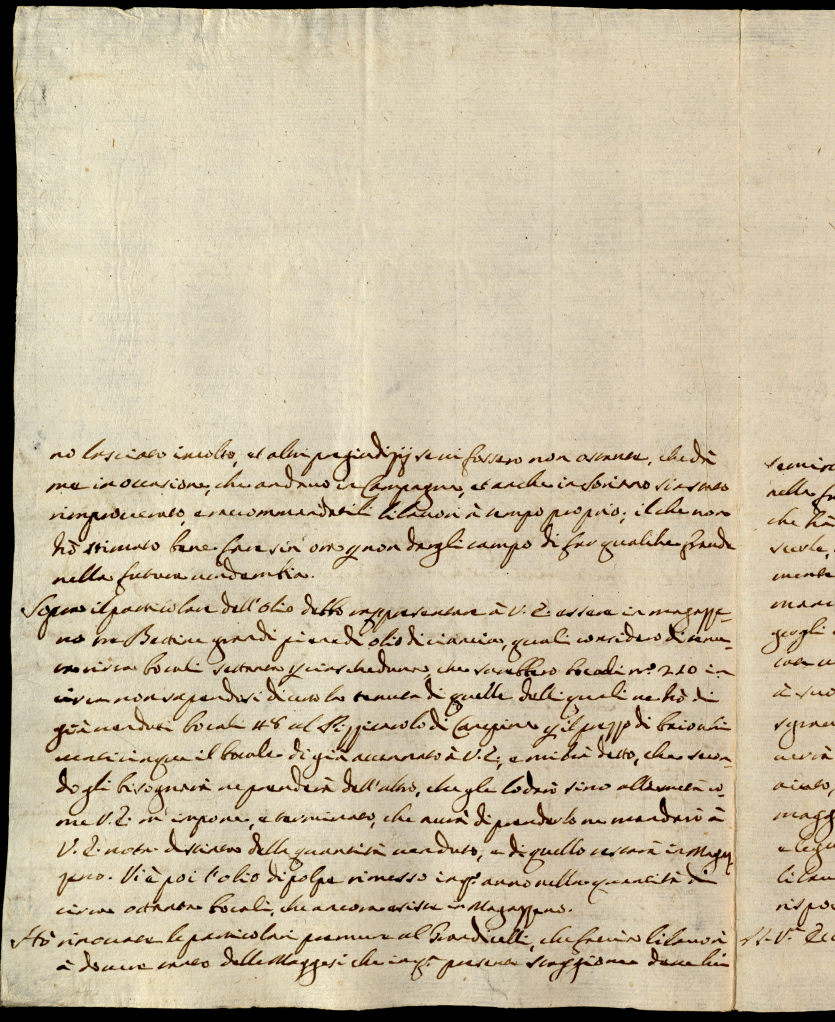 no lasciato incolto, et altri pregiudizij se vi fossero non ostante, che da
me in occasione, che andavo in Campagna, et anche in Soriano sia stato
rimproverato, e raccommandatili li lavori à tempo proprio; il che non
hò stimato bene fare sin' ora p non dargli campo di far qualche frode
nella futura vendembia.
Sopra il particolare dell'Olio debbo rappresentare à V. E. essere in magazze-
no tre Bettine grandi piene di olio di ciancia, quali considero di tenu-
ta circa bocali settanta p ciascheduna, che sarebbero bocali nº 210 in
circa non sapendosi di certo la tenuta di quelle delli quali ne hò di
già venduti bocali 48 al Sr. di Carpine p il prezzo di baiocchi
venticinque il bocale di già accennato à V. E., e mi hà detto, che secon-
do gli bisognarà ne prenderà dell'altro, che gle lo darò sino alla metà co-
me V. E. m' impone, e terminato, che avrà di prenderlo ne mandarò à
V. E. nota distinta della quantità venduta, e di quello restarà in Magaz-
zeno. Vi è poi l'olio di polpa rimesso in qt. anno nella quantità di
circa ottanta bocali, che ancora esiste in Magazzeno.
Hò rinovate le particolari premure al Grandicelli, che faccia li lavori
à dovere tanto delle Maggesi che in qt. presente staggione deve
semin
nella fu
che hà
scuole,
mente
mare
gesgli
con
à suo
sign
verà
aiuto,
magg
e legn
li lav
rispo